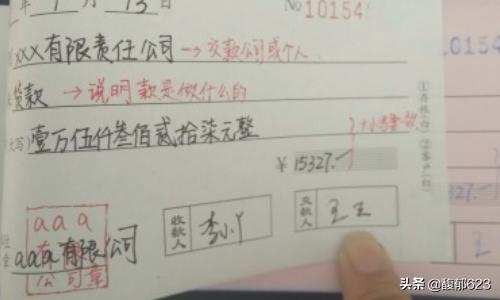 年 1 月 13 日 No 10154
XXX有限责任公司 → 交款公司或个人
货款 → 说明款是做什么的
大写) 壹万伍仟叁佰贰拾柒元整
¥ 15327.- 大小写要一致
①存根(白) ②客户(红)
0154
327.-
aaa
公司章
aaa有限公司
收款人 李小丫
交款人 王王
头条 @馥郁623